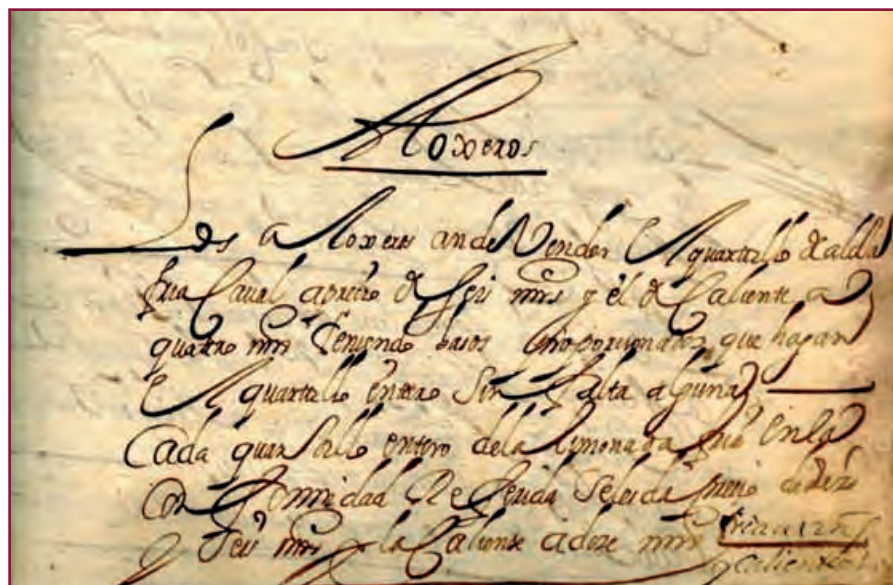 Aloxeros
Los Aloxeros an de Vender el quartillo de aloxa
fria Caval a precio de seis mrs y el de Caliente a
quattro mrs teniendo basos proporcionados que hagan
el quartillo entero sin falta alguna
Cada quartillo entero de la limonada fria en la
Conformidad Referida se les da precio de diez
y seis mrs y la Caliente a doze mrs fria a
caliente